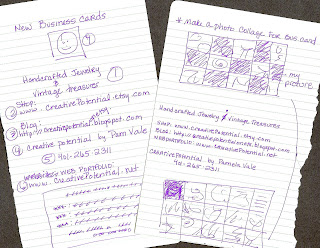 New Business Cards
4
Handcrafted Jewelry
Vintage Treasures
1
2 Shop:
www.CreativePotential.etsy.com
Blog:
3 http://creativepotential.blogspot.com
4 Creative Potential by Pam Vale
5 401-265-2311
Web Portfolio:
6 www.CreativePotential.net
* Make a photo Collage for bus. card
my
picture
Handcrafted Jewelry & Vintage Treasures
Shop: www.CreativePotential.etsy.com
Web Portfolio: www.CreativePotential.net
Creative Potential by Pamela Vale
401-265-2311